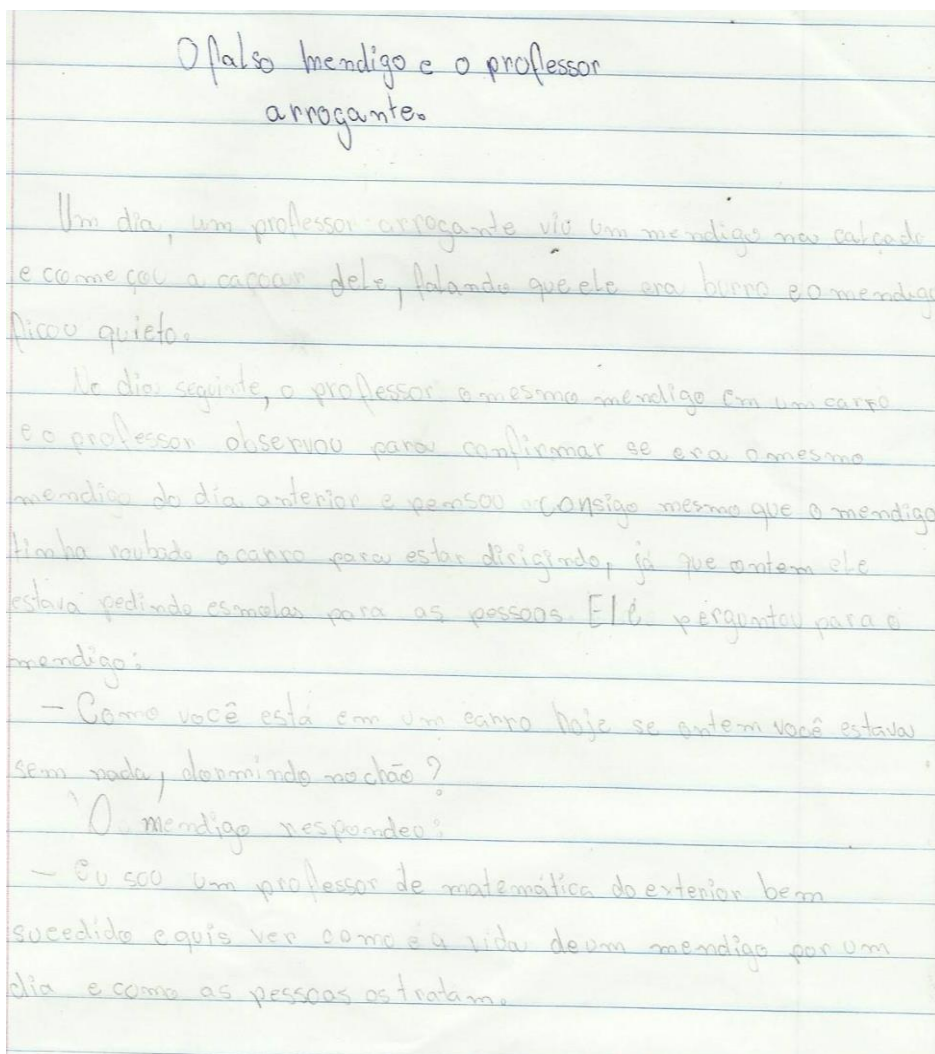 O falso mendigo e o professor
arrogante.
Um dia, um professor arrogante viu um mendigo na calçada
e começou a caçoar dele, falando que ele era burro e o mendigo
ficou quieto.
No dia seguinte, o professor o mesmo mendigo em um carro
e o professor observou para confirmar se era o mesmo
mendigo do dia anterior e pensou consigo mesmo que o mendigo
tinha roubado o carro para estar dirigindo, já que ontem ele
estava pedindo esmolas para as pessoas. Ele perguntou para o
mendigo:
- Como você está em um carro hoje se ontem você estava
sem nada, dormindo no chão?
O mendigo respondeo:
- Eu sou um professor de matemática do exterior bem
sucedido e quis ver como é a vida de um mendigo por um
dia e como as pessoas os tratam.